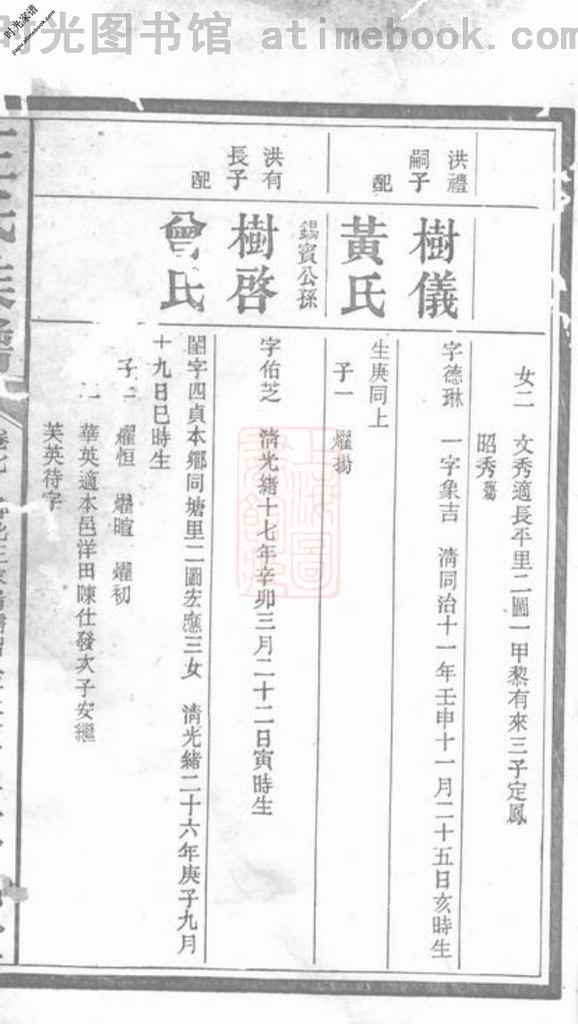 时光图书馆 atimebook.com
时光家谱
女二　文秀適長平里二圖一甲黎有來三子定鳳
昭秀殤
洪禮
嗣子
樹儀
字德琳　一字象吉　清同治十一年壬申十一月二十五日亥時生
配
黃氏
生庚同上
子一　燿揚
錫賓公孫
洪有
長子
樹啓
字佑芝　清光緒十七年辛卯三月二十二日寅時生
配
曾氏
閨字四貞本鄉同塘里二圖宏應三女　清光緒二十六年庚子九月
十九日巳時生
子三　燿恒　燿暄　燿初
華英適本邑洋田陳仕發次子安繼
芙英待字
氏族譜